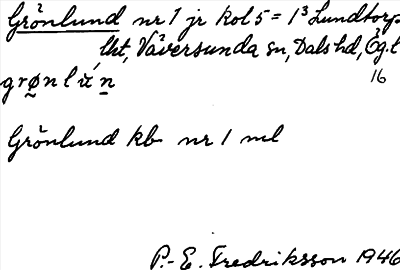 Grönlund nr 1 jr kol 5 = 1³ Lundtorp
lht, Väversunda sn, Dals hd, Ög.l
16
grønlún
Grönlund kb nr 1 ml
P.-E. Fredriksson 1946